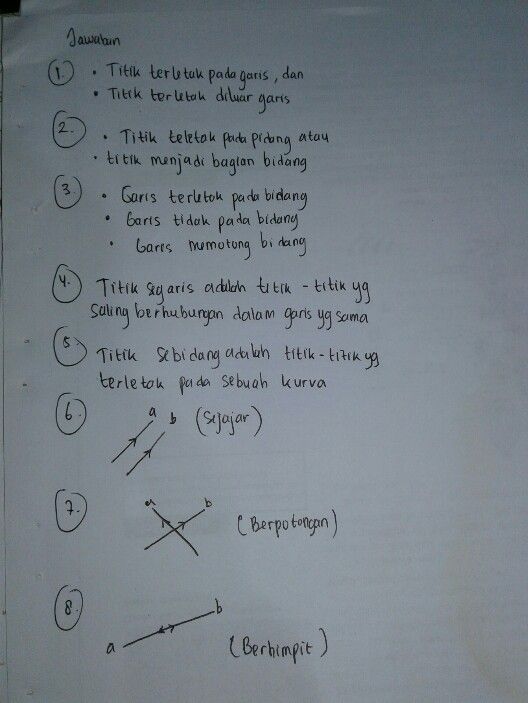 Jawaban
1. • Titik terletak pada garis, dan
• Titik terletak diluar garis
2. • Titik teletak pada pidang atau
• titik menjadi bagian bidang
3. • Garis terletak pada bidang
• Garis tidak pada bidang
• Garis memotong bidang
4. Titik sgaris adalah titik - titik yg
saling berhubungan dalam garis yg sama
5. Titik sebidang adalah titik - titik yg
terletak pada sebuah kurva
6. a b (Sejajar)
7. a b (Berpotongan)
8. a b (Berhimpit)